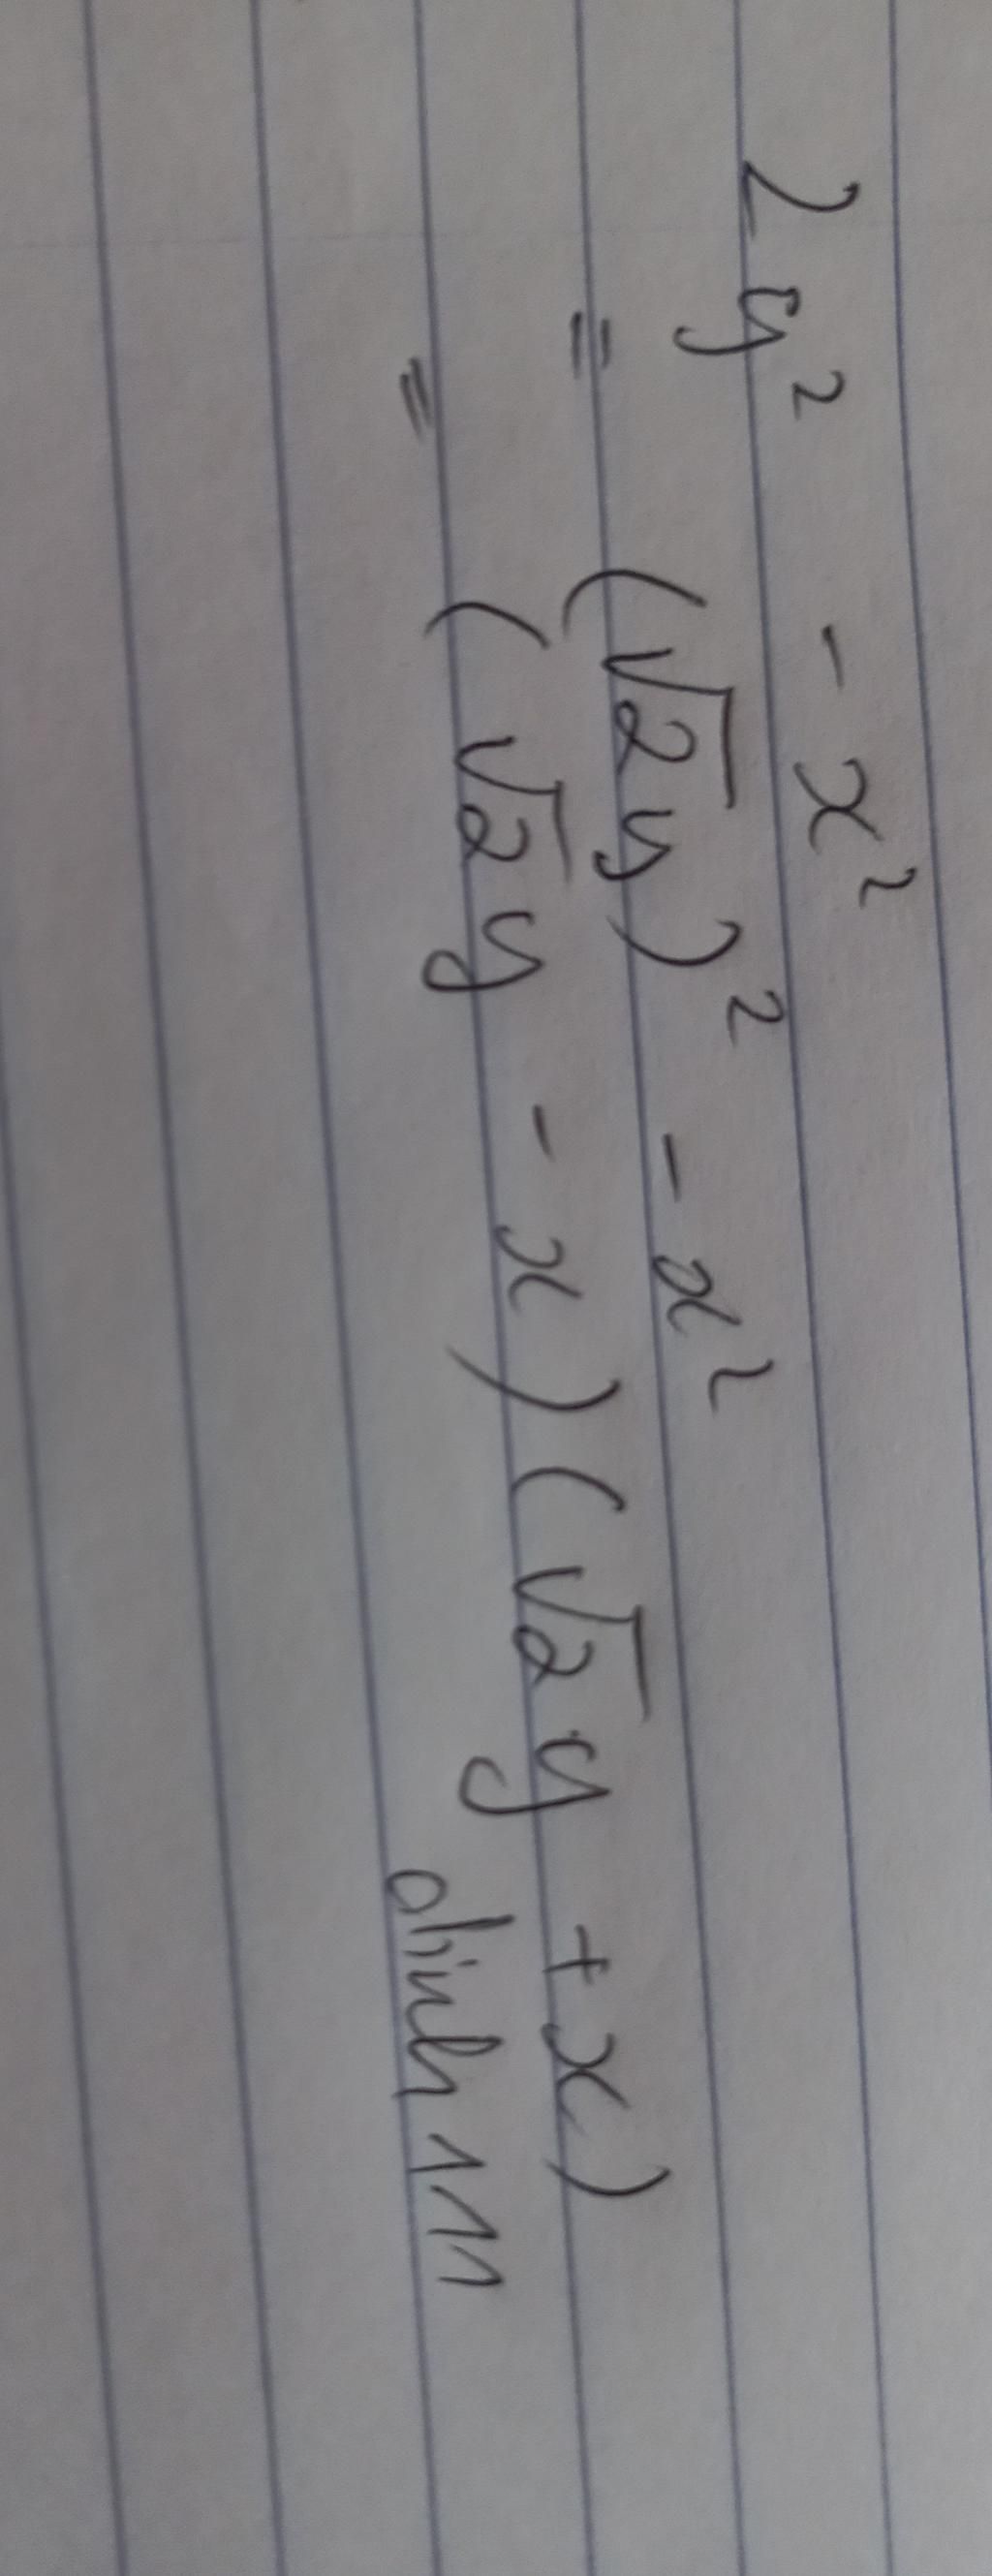 2y² - x²
= (√2y)² - x²
= (√2y - x)(√2y + x)
olinh 111